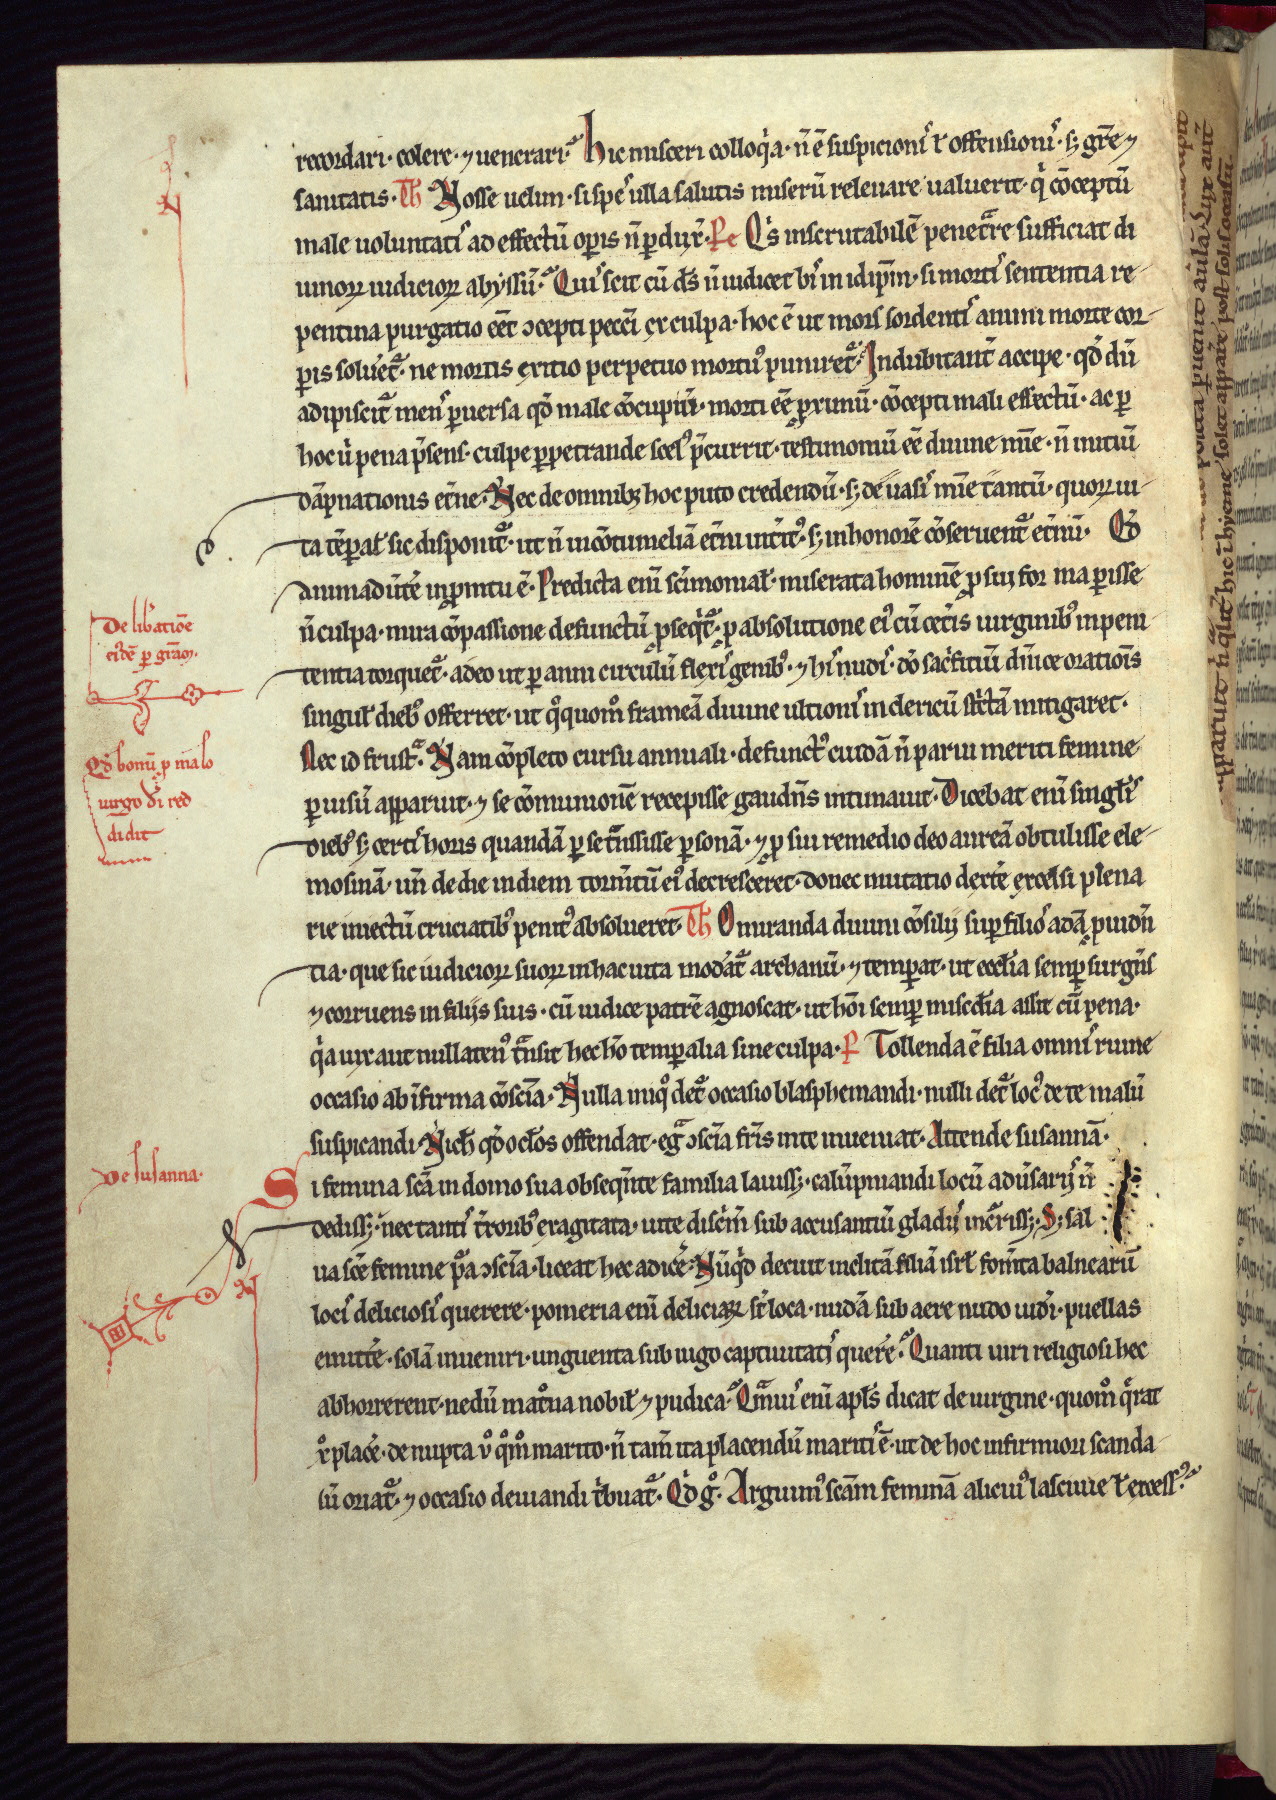 recordari · colere · ⁊ uenerari. Hic misceri colloq̇a · n̄ ē suspicionis ł offensionis · sꝫ gr̄e ⁊
sanitatis · Th Nosse uelim · si spes ulla salutis miserū releuare ualuerit · q̇ cōceptū
male uoluntatis ad effectū opis n̄ pduxit · Pe Q̇s inscrutabilē penetrare sufficiat di
uinoꝝ iudicioꝝ abyssū. Quis scit cū ds̄ n̄ iudicet bis in idipm̄ · si mortis sententia re
pentina purgatio eēt ɔcepti pecc̄i ex culpa · hoc ē ut mors sordentis animi morte cor
pis soluēt · ne mortis exitio perpetuo mortu᷒ puniret · Indubitant̄ accipe · qd̄ dū
adipiscit̄ mens puersa qd̄ male cōcupiuit · morti eē proximū · cōcepti mali effectū · ac p
hoc ū pena p̄sens · culpe ppetrande scel᷒ p̄currit · testimoniū eē diuine mīe · n̄ initiū
dāpnationis etn̄e · Nec de omnibꝫ hoc puto credendū · sꝫ de uasis mīe tantū · quoꝝ ui
ta tēpalˀ sic disponit᷑ · ut n̄ in cōtumeliā etn̄i int̄it᷒ · sꝫ in honorē cōseruent᷑ etn̄ū · Qd̄
animaduˀtē inpromtu ē · Predicta eni sc̄imonialˀ · miserata hominē pro sui forma perisse
n̄ culpa · mira cōpassione defunctū proseqt᷑ · p absolutione ei᷒ cū cetˀis uirginib᷒ in peni
tentia torquet᷑ · adeo ut p anni circulū flexis genib᷒ · ⁊ his nudis · do sacˀfitiū dn̄ice orationis
singulˀ dieb᷒ offerret · ut q᷒quom᷒ frameā diuine ultionis in clericū strictā mitigaret ·
Nec id frustra · Nam cōpleto cursu annuali · defunct᷒ cuidā n̄ parui meriti femine
p uisū apparuit · ⁊ se cōmunionē recepisse gaudn̄s intimauit · Dicebat eni singlis
dieb᷒ sꝫ certis horis quandā p se tn̄sisse psonā · ⁊ pro sui remedio deo aureā obtulisse ele
mosinā · un̄ de die in diem torm̄tū ei᷒ decresceret · donec mutatio dextˀe excelsi plena
rie inuectū cruciatib᷒ penit᷒ absolueret · Th O miranda diuini cōsilii sup filios adā prouidn̄
tia · que sic iudicioꝝ suoꝝ in hac uita modˀat᷑ archanū · ⁊ temperat · ut eccl̄ia semp surgn̄s
⁊ corruens in filiis suis · cū iudice patrē agnoscat · ut hōi semper misc̄dia assit cū pena ·
q̇a uix aut nullaten᷒ transit hec ho temperalia sine culpa · P Tollenda ē filia omnis ruine
occasio ab īfirma cōscīa · Nulla iniq᷒ det᷑ occasio blasphemandi · nulli det᷑ loc᷒ de te malū
suspicandi · Nich qd̄ oclos offendat · egra ɔscīa fr̄is in te inueniat · Attende susannā ·
Si femina sc̄a in domo sua obseqn̄te familia lauissꝫ · calūpniandi locū aduˀsariis n̄
dedissꝫ · nec tantis tˀrorib᷒ exagitata · uite discˀim sub accusantiū gladiis incˀrissꝫ · Sꝫ sal
ua sc̄e femine pace ɔscīa · liceat hec adicˀe · Nūqd̄ decuit inclitā filiā isrl fom̄ta balnearū
locis deliciosis querere · pomeria eni deliciaꝝ st̄ loca · nudā sub aere nudo uidˀi · puellas
emittˀe · solā inueniri · unguenta sub iugo captiuitatis querˀe · Quanti uiri religiosi hec
abhorrerent · nedū matrona nobilˀ ⁊ pudica · Quāuis eni apl̄s dicat de uirgine · quom᷒ qrat
x᷒ placˀe · de nupta u᷒ q᷒m᷒ marito · n̄ tam̄ ita placendū maritis ē · ut de hoc infirmiori scanda
lū oriat᷑ · ⁊ occasio deuiandi tˀbuat᷑ · Qd g᷒ · Arguim᷒ scām feminā alicui᷒ lasciuie ł excess᷒
De libˀatiōe
ei᷒dē p grām ·
Qd̄ bonū p malo
uirgo di red
didit
De susanna ·
apparuit